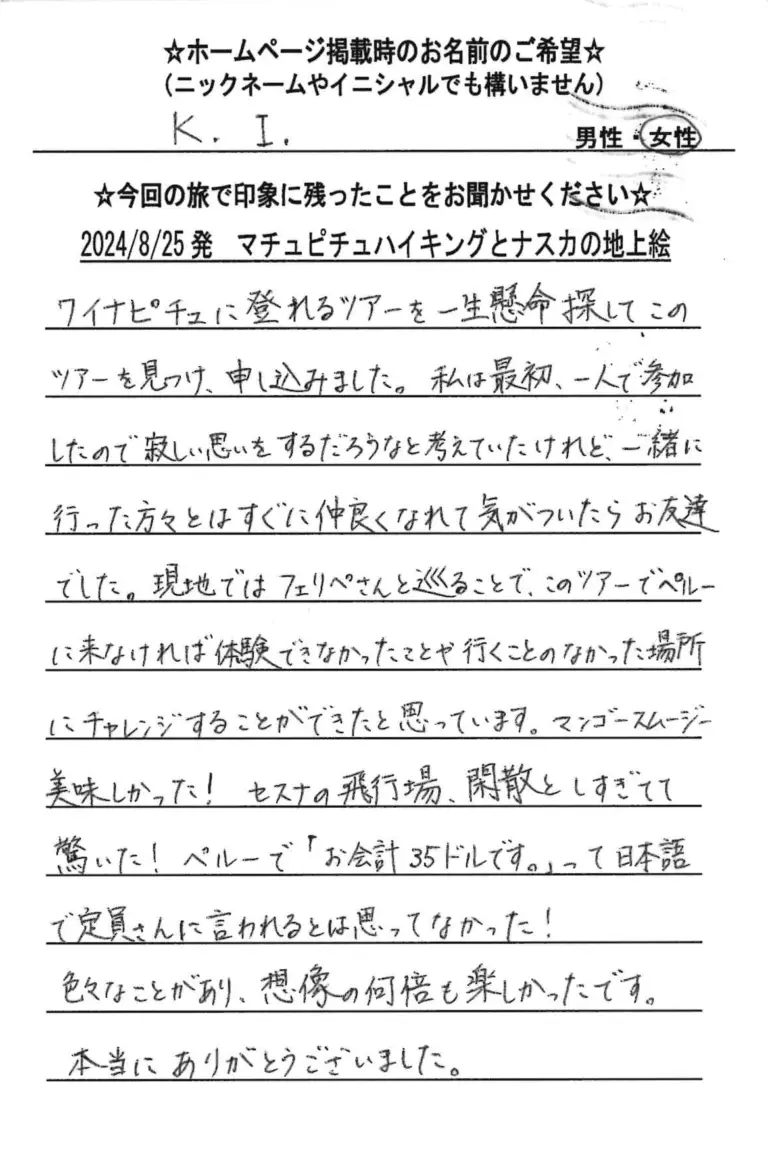 ☆ホームページ掲載時のお名前のご希望☆
(ニックネームやイニシャルでも構いません)
K. I. 男性・女性
☆今回の旅で印象に残ったことをお聞かせください☆
2024/8/25発 マチュピチュハイキングとナスカの地上絵
ワイナピチュに登れるツアーを一生懸命探してこの
ツアーを見つけ、申し込みました。私は最初、一人で参加
したので寂しい思いをするだろうなと考えていたけれど、一緒に
行った方々とはすぐに仲良くなれて気がついたらお友達
でした。現地ではフェリペさんと巡ることで、このツアーでペルー
に来なければ体験できなかったことや行くことのなかった場所
にチャレンジすることができたと思っています。マンゴースムージー
美味しかった! セスナの飛行場、閑散としすぎてて
驚いた! ペルーで「お会計35ドルです。」って日本語
で定員さんに言われるとは思ってなかった!
色々なことがあり、想像の何倍も楽しかったです。
本当にありがとうございました。